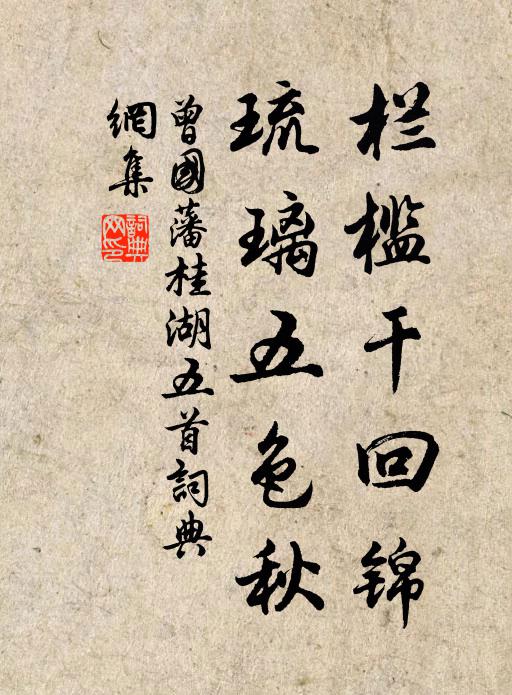 栏槛干回锦
琉璃五色秋
曾國藩桂湖五首詞典
網集
詞典
网印